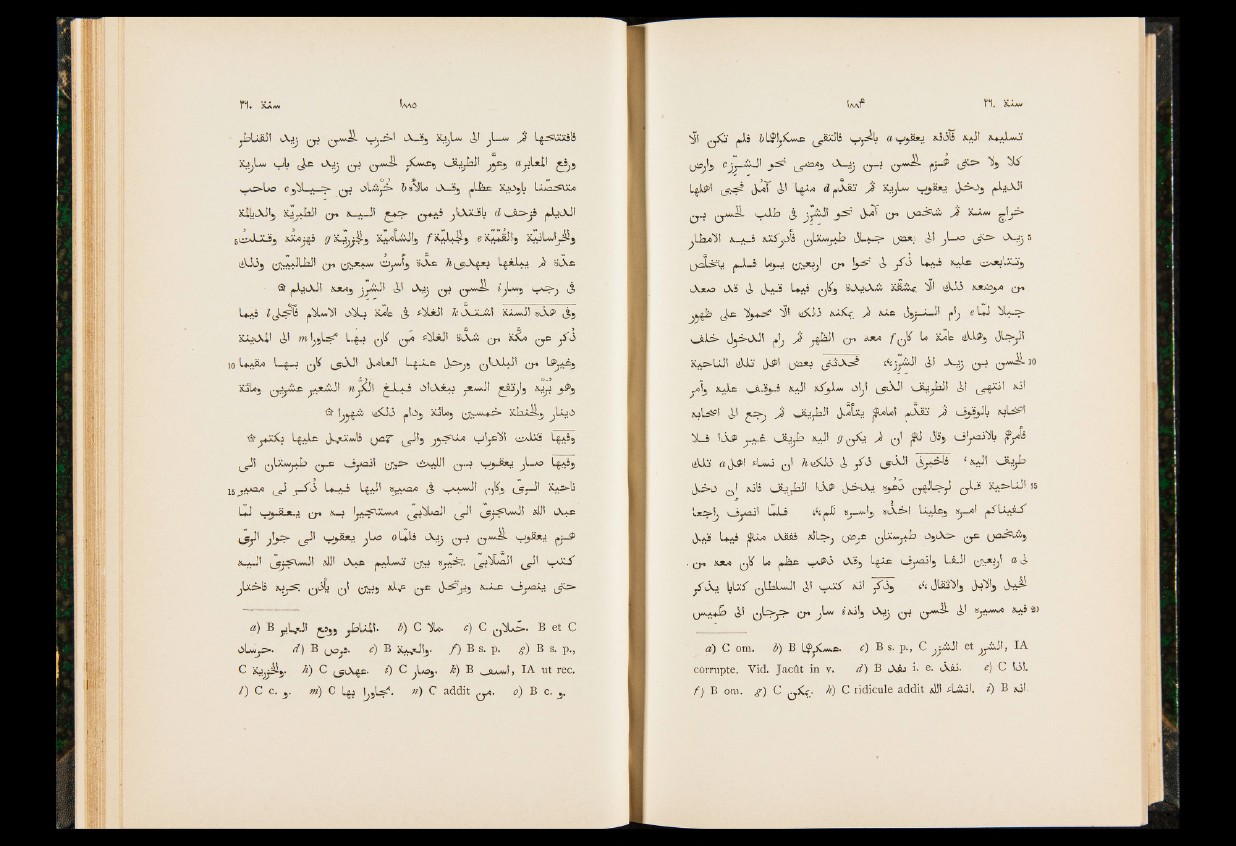 سنة ٢٦٠ ١٨٨٤
تسليمه اليه فآذنه يعقوب a بالحرب فالتقى عسكراهما b فلم تكن الّا
كلا ولا حتى هُزم الحسن بن زيد ومضى نحو الشِرِّز c وارض
الديلم ودخل يعقوب سارية ثم تقدّم d منها الى آمُل فجبى اهلها
خراج سنة ثم شخص من آمل نحو الشرّز فى طلب الحسن بن
5 زيد حتى صار الى بعض جبال طبرستان فأدركته فيه الامطار
وتتابعت عليه فيما ذُكر لى نحوا من اربعين يوما فلم يتخلّص
من موضعه ذلك الّا بمشقّة شديدة وكان فيما قيل لى قد صعد
جبلا لمّا e رام النزول عنه لم يمكنه ذلك الّا محمولا على ظهور
الرجال وهلك عامّة ما كان f معه من الظهر ثم رام الدخول خلف
10 الحسن بن زيد الى الشرّز، فحدّثنى بعض اهل تلك الناحية
انه انتهى الى الطريق الذى اراد سلوكه اليه فوقف عليه وأمر
اصحابه بالوقوف ثم تقدّم امامهم يتأمّل الطريق ثم رجع الى اصحابه
فأمرهم بالانصراف وقال لهم ان لم يكن g اليه طريق غير هذا فلا
طريق اليه، فاخبرنى الذى ذكر لى ذلك h ان نساء اهل a تلك
15 الناحية قلن لرجالهن دَعُوه يدخل هذا الطريق فانه ان دخل
كفيناكم امره وعلينا اخذُه واسره لكم، فلمّا انصرف راجعا
وشخص عن حدود طبرستان عرض رجاله ففقد منهم فيما قيل
لى a اربعين الفا وانصرف عنها وقد ذهب عظم ما كان معه من
الخيل والابل والاثقال، وذُكر انه كتب الى السلطان كتابا يذكر
20 فيه مسيره الى الحسن بن زيد وانه i سار من جرجان الى طميس
a) C om. b) B عسكرهما. c) B s. p., C الشزر et الشرر, IA
corrupte. Vid. Jacût in v. d) B نفذ i. e. نفذ. e) C اذا.
f) B om. g) C يمكن. h) C ridicule addit انشاء الله. i) B انه.
سنة ٢٦٠ ١٨٨٥
فافتتحها ثم سار الى سارية وقد اخرب الحسن بن زيد القناطر
ورفع المعابر a وعوّر الطريق وعسكر الحسن بن زيد على باب سارية
متحصّنا باودية عظام وقد مالأه b خُرْشاد بن جيلاو c صاحب
الديلم فزحف d باقتدار فيمن جمع اليه من الطبريّة والديالمة
5 والخراسانيّة والقُمّيّة e والجبليّة f والشأميّة والجزريّة g فهزمتُه وقتلتُ
عدّة لم يبلغها بعهدى h عدّة وأسرتُ سبعين من الطالبيّين وذلك
فى رجب وسار i الحسن بن زيد الى الشرّز ومعه الديلم ۞
وفى هذه السنة اشتدّ k الغلاء فى عامّة بلاد الاسلام فأنجلى l فيما
ذُكر عن مكّة من شدّة الغلاء مَن كان بها مجاورا m الى المدينة
10 وغيرها من البلدان ورحل عنها العامل الذى كان بها مقيما
وهو بُرَيْه وارتفع السعر ببغداد فبلغ الكُرّ n الشعير عشرين ومائة
دينار والحنطة خمسين ومائة ودام ذلك شهورا ۞
وفيها قتلت الاعراب منجور والى حمص فاستعمل عليها بكتمر ۞
وفيها صار يعقوب بن الليث حين انصرف عن طبرستان الى
15 ناحية الرىّ وكان السبب فى مصيره اليها فيما ذُكر لى مصير
عبد الله السجزىّ الى الصلابىّ مستجيرا به من يعقوب لمّا
هزم يعقوب الحسن بن زيد فلمّا o صار يعقوب الى جوار الرىّ
كتب الى الصَّلابىّ يخيّره بين تسليم عبد الله السجزىّ اليه
حتى ينصرف عنه ويرتحل عن عمله وبين ان يأذن بحربه فاختار
a) B المناطر ووقع العابر. b) C ملا. c) C حملان. B et C
خرساد. d) B فرص. e) B والعميه. f) B s. p. g) B s. p.,
C والخزرية. h) C عهدى. i) C وصار. k) B اسىف, IA ut rec.
l) C c. و. m) C مجاورا بها. n) C addit من. o) B c. و.